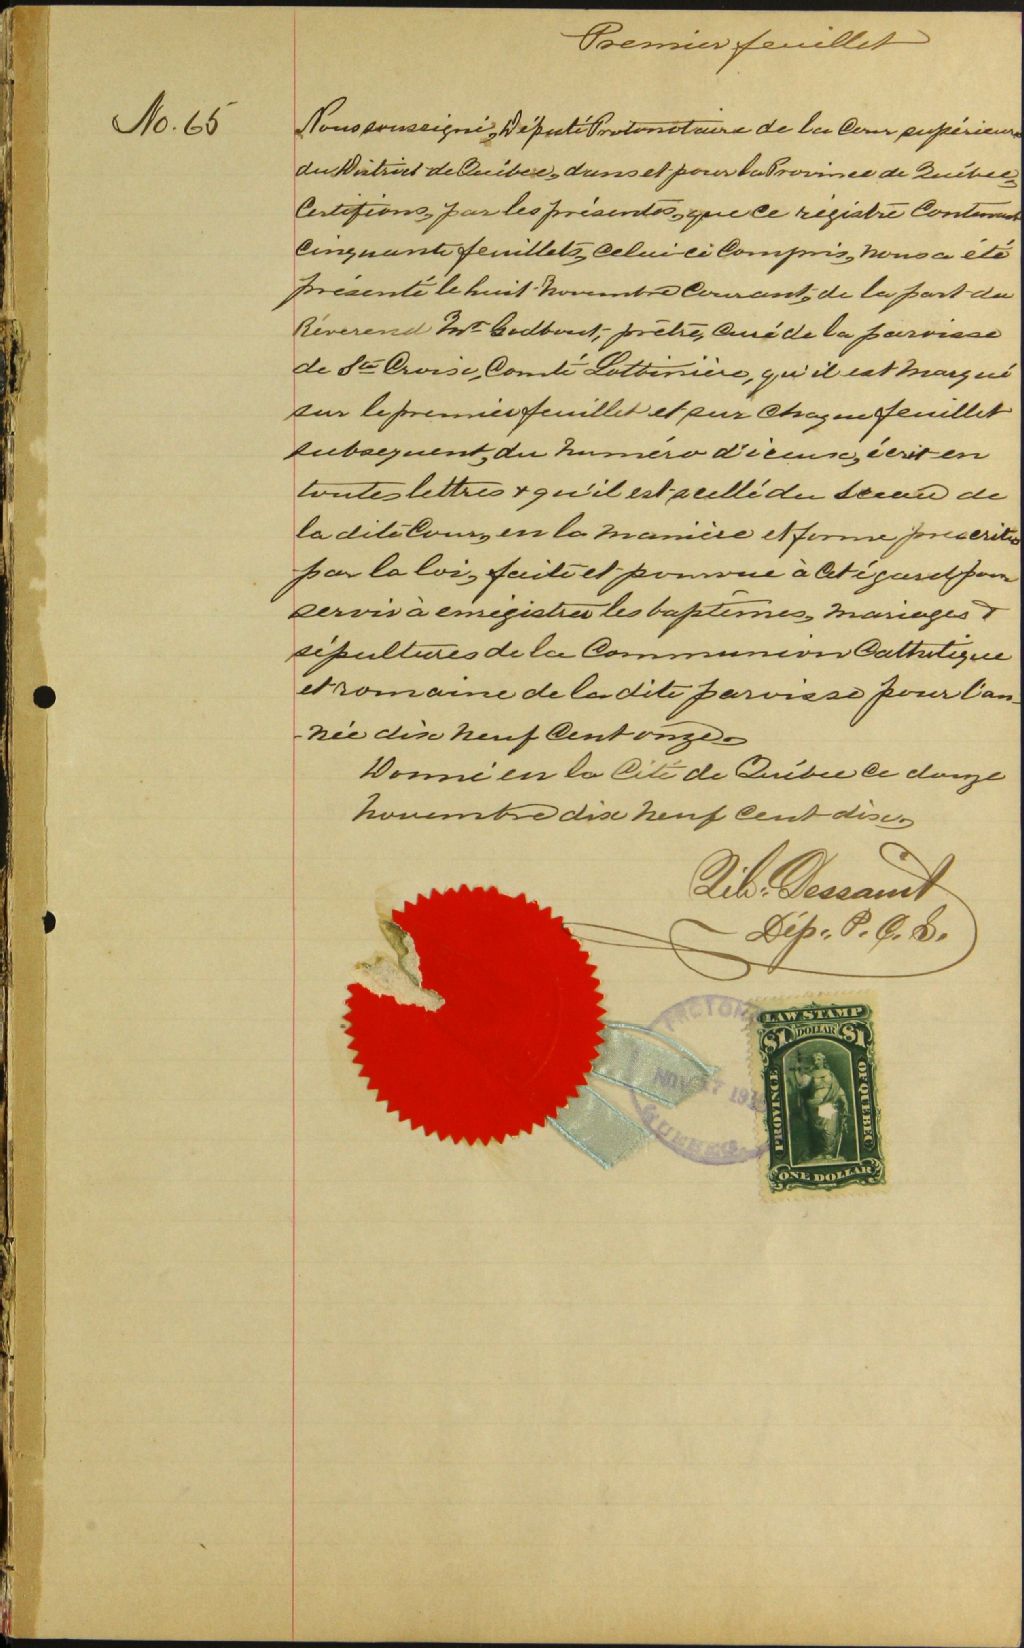 Premier feuillet
No. 65
Nous soussigné, Député Protonotaire de la Cour supérieure
du District de Québec, dans et pour la Province de Québec,
Certifions, par les présentes, que ce régistre Contenant
Cinquante feuillets, celui-ci Compris, nous a été
présenté le huit Novembre Courant, de la part du
Révérend Mr Godbout, prêtre, Curé de la paroisse
de Ste Croix, Comté Lotbinière, qu'il est Marqué
sur le premier feuillet et sur Chaque feuillet
subséquent, du Numéro d'iceux, écrit en
toutes lettres & qu'il est scellé du Sceau de
la dite Cour, en la Manière et forme prescrites
par la loi, faite et pourvue à Cet égard pour
servir à enrégistrer les baptêmes, Mariages &
sépultures de la Communion Catholique
et romaine de la dite paroisse pour l'an-
-née dix Neuf Cent onze.
Donné en la Cité de Québec Ce douze
Novembre dix Neuf Cent dix.
Dessaint
Dép. P. C. S.
NOV 17 191
QUEBEC
LAW STAMP
$1 DOLLAR $1
PROVINCE OF QUEBEC
ONE DOLLAR